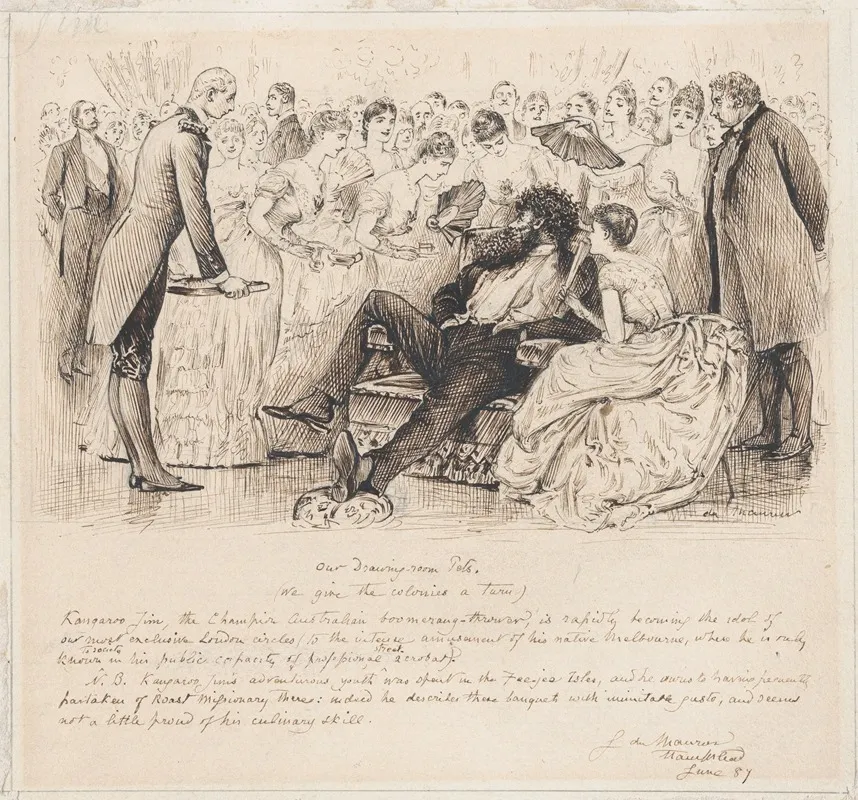 du Maurier
Our Drawing-room Pets.
(We give the colonies a turn)
Kangaroo Jim, the Champion Australian boomerang-thrower, is rapidly becoming the idol of
our most exclusive London circles (to the intense amusement of his native Melbourne, where he is only
to society street
known in his public capacity of professional acrobat).
N. B. Kangaroo Jim's adventurous youth was spent in the Feejee Isles, and he owns to having frequently
partaken of Roast Missionary there: indeed he describes these banquets with inimitable gusto, and seems
not a little proud of his culinary skill.
G du Maurier
Hampstead
June 87